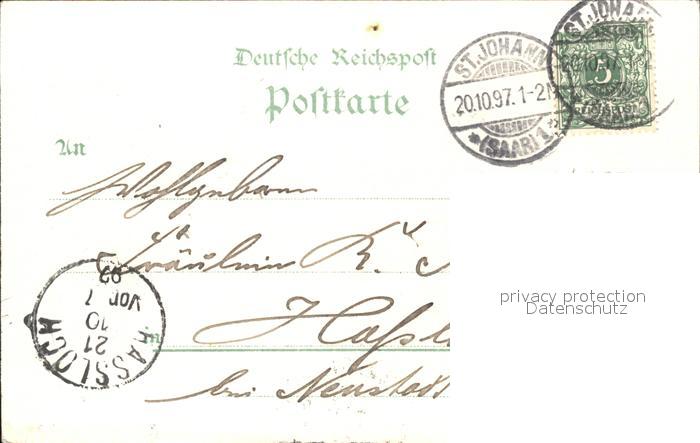 Deutsche Reichspost
Postkarte
ST. JOHANN
20.10.97. 1-2N
*(SAAR) 1.*
ST. JOHANN
20.10.97. 1-2
(SAAR)
5
An
Wohlgeboren
Fräulein K.
in Haßl
bei Neustadt
HASSLOCH
21
10
Vor 7
privacy protection
Datenschutz